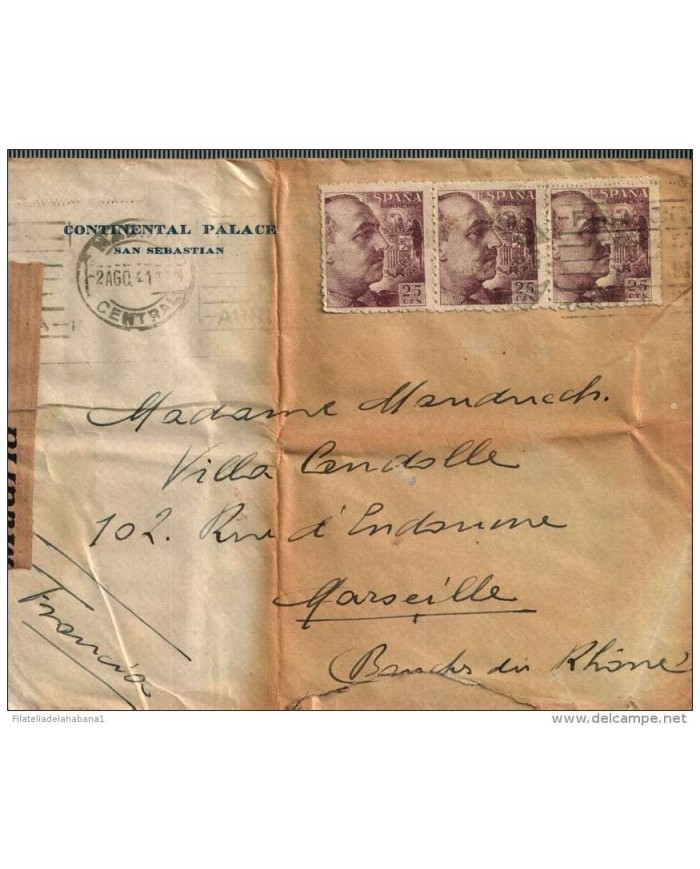 CONTINENTAL PALACE
SAN SEBASTIAN
-2AGO.41
CENTRAL
ESPAÑA
25
CTS
ESPAÑA
25
CTS
ESPAÑA
25
CTS
Madrid
Madame
Villa Candolle
102. Rue d'Endoume
Marseille
du Rhône
Francia
Filateliadelahabana1
www.delcampe.net